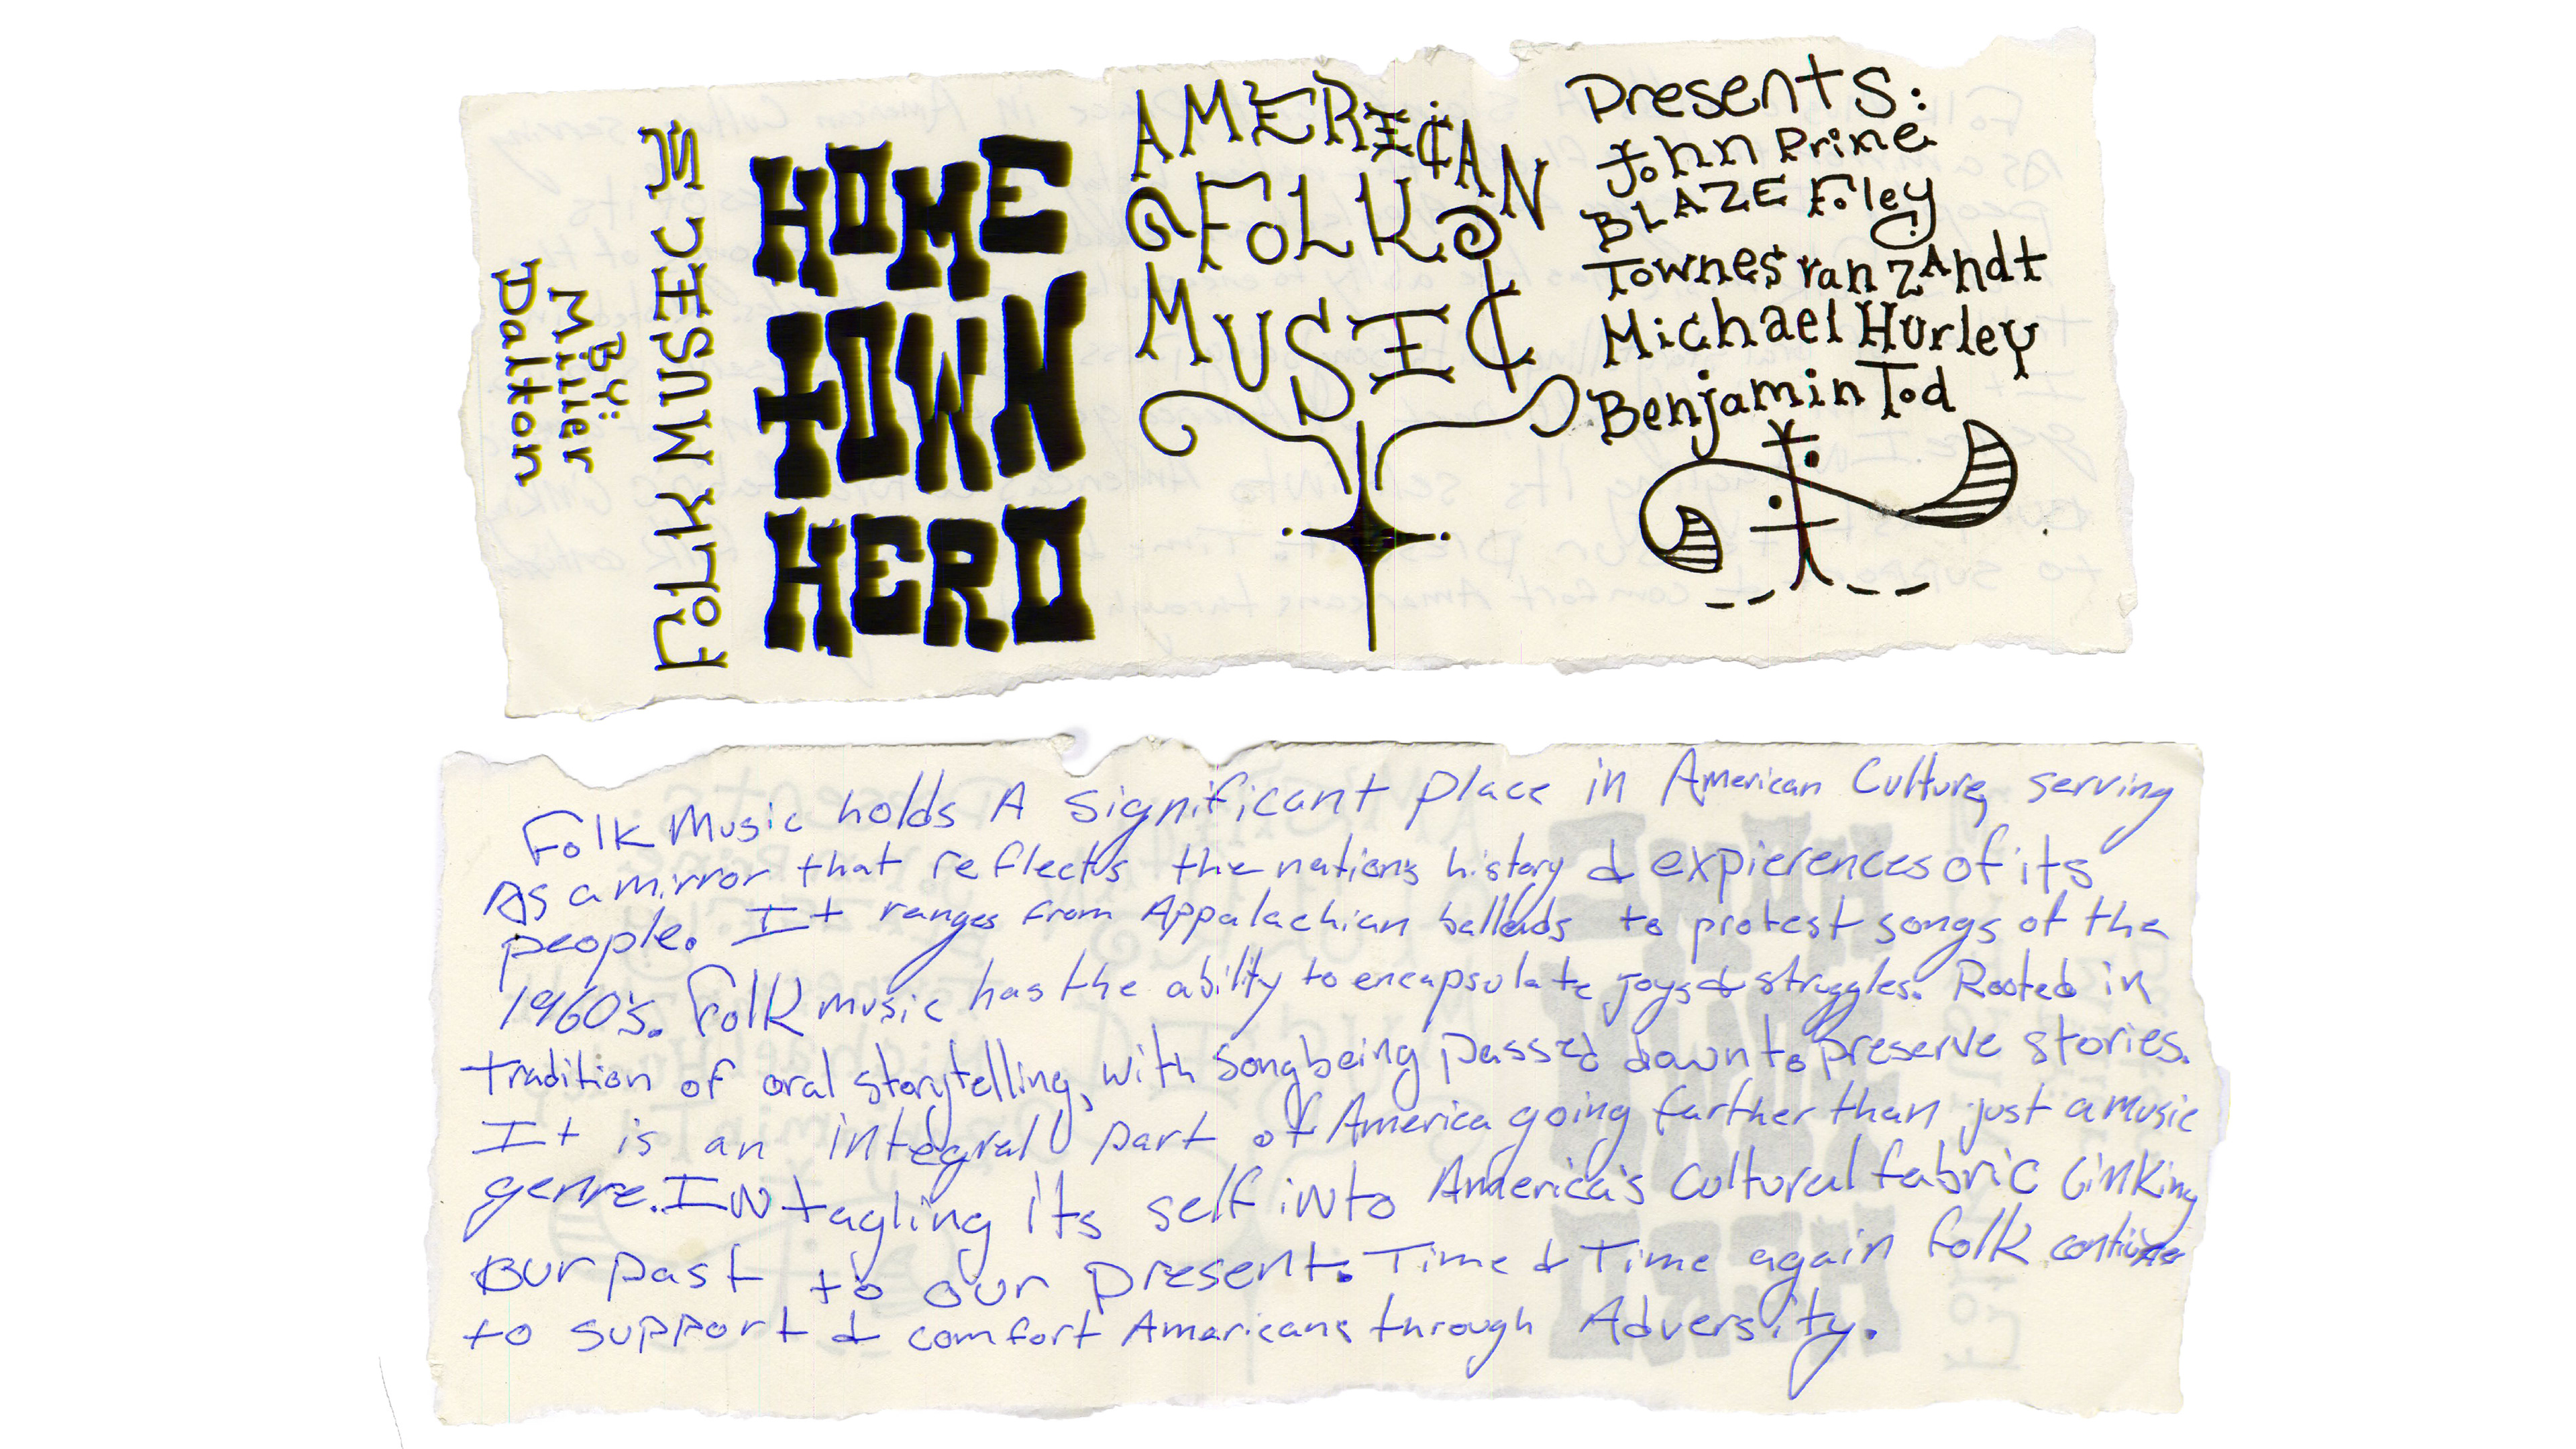 Dalton
Miller
By:
FOLK MUSIC III
HOME
TOWN
HERO
AMERICAN
FOLK
MUSIC
Presents:
John Prine
BLAZE Foley
Townes van ZAndt
Michael Hurley
Benjamin Tod
Folk Music holds A significant place in American Culture, serving
As a mirror that reflects the nation's history & expierences of its
people. It ranges from Appalachian ballads to protest songs of the
1960's. Folk music has the ability to encapsulate joys & struggles. Rooted in
tradition of oral storytelling, with song being passed down to preserve stories.
It is an integral part of America going farther than just a music
genre. INtagling its self into America's Cultural fabric linking
our past to our present. Time & Time again folk continues
to support & comfort Amaricans through Adversity.